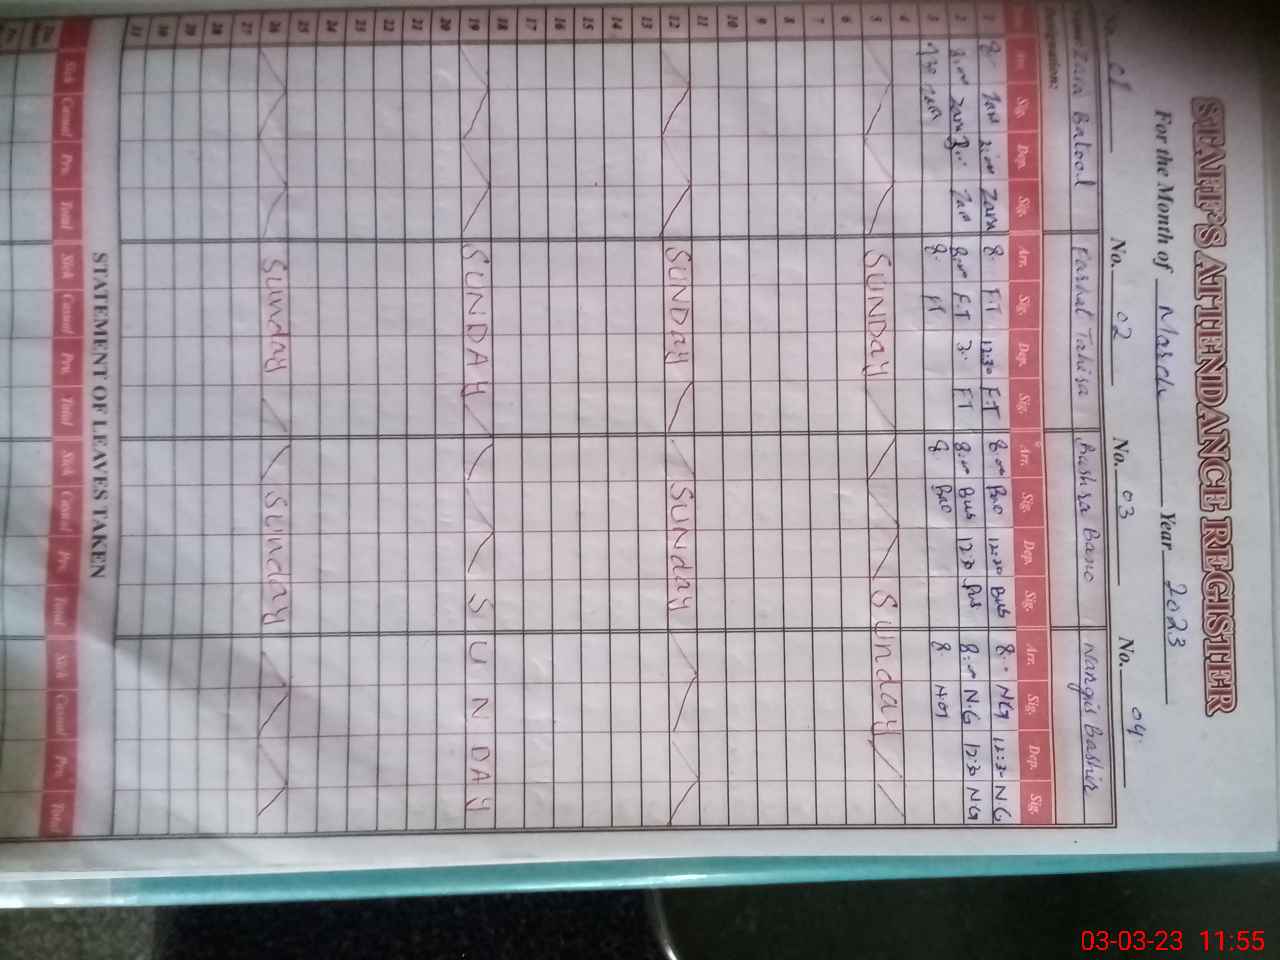 STAFF'S ATTENDANCE REGISTER
For the Month of March Year 2023
No. 01 No. 02 No. 03 No. 04
Name Zara Batool Farhat Tahira Bushra Bano Nargis Bashir
Designation:
Arr. Sig. Dep. Sig. Arr. Sig. Dep. Sig. Arr. Sig. Dep. Sig. Arr. Sig. Dep. Sig.
1 8 Zara Zara 8 F.T 12:30 F.T 8:00 Bno 12:30 Bus 8 NG 12:30 N.G
2 8:00 Zara Zara 8:00 F.T 3 F.T 8:00 Bus 12:30 Bus 8:00 N.G 12:30 NG
3 7:30 Zara 8 FT 8 Bno 8 N.G
4
5 SUNDay Sunday
6
7
8
9
10
11
12 SUNDay SUNday
13
14
15
16
17
18
19 SUNDAY SUNDAY
20
21
22
23
24
25
26 Sunday Sunday
27
28
29
30
31
STATEMENT OF LEAVES TAKEN
Sick Casual Pre. Total Sick Casual Pre. Total Sick Casual Pre. Total Sick Casual Pre. Total
03-03-23 11:55